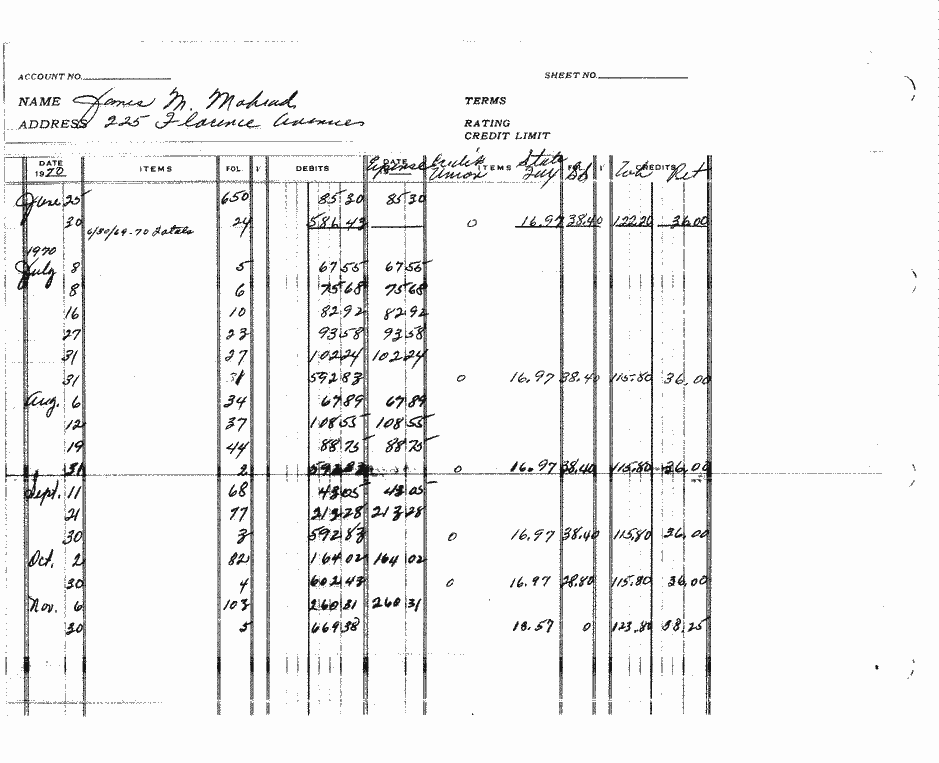 ACCOUNT NO. SHEET NO.
NAME James M. TERMS
ADDRESS 225 Florence Avenue RATING
CREDIT LIMIT
DATE 1970 ITEMS FOL. √ DEBITS DATE Expense Credit Union ITEMS State Tax FOL. √ CREDITS Ret
June 25 650 85 30 85 30
30 6/30/69-70 Totals 24 586.43 0 16.97 38.40 122.20 36.00
1970
July 8 5 67 55 67 55
8 6 75 68 75 68
16 10 82 92 82 92
27 23 93 58 93 58
31 27 102 24 102 24
31 31 592 83 0 16.97 38.40 115.80 36.00
Aug. 6 34 67 89 67 89
12 37 108 55 108 55
19 44 88 75 88 75
31 2 592 83 0 16.97 38.40 115.80 36.00
Sept. 11 68 43 05 43 05
21 77 213 28 213 28
30 3 592 83 0 16.97 38.40 115.80 36.00
Oct. 2 82 164 02 164 02
30 4 602 43 0 16.97 28.80 115.80 36.00
Nov. 6 103 260 31 260 31
30 5 669 38 18.57 0 123.80 38.25